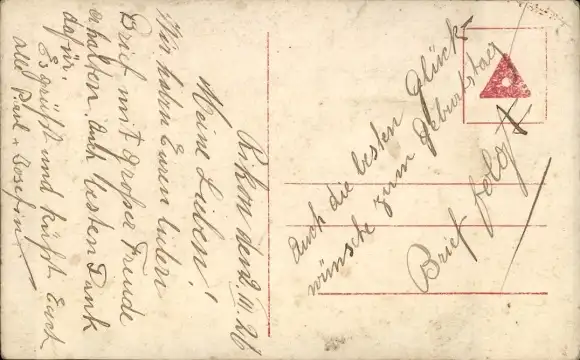 Rikon den 2. III. 26
Meine Lieben!
Wir haben Euren lieben
Brief mit großer Freude
erhalten. Auch besten Dank
dafür.
Es grüßt und küßt Euch
alle Paul u. Josefin
Auch die besten Glück-
wünsche zum Geburtstag
Brief folgt